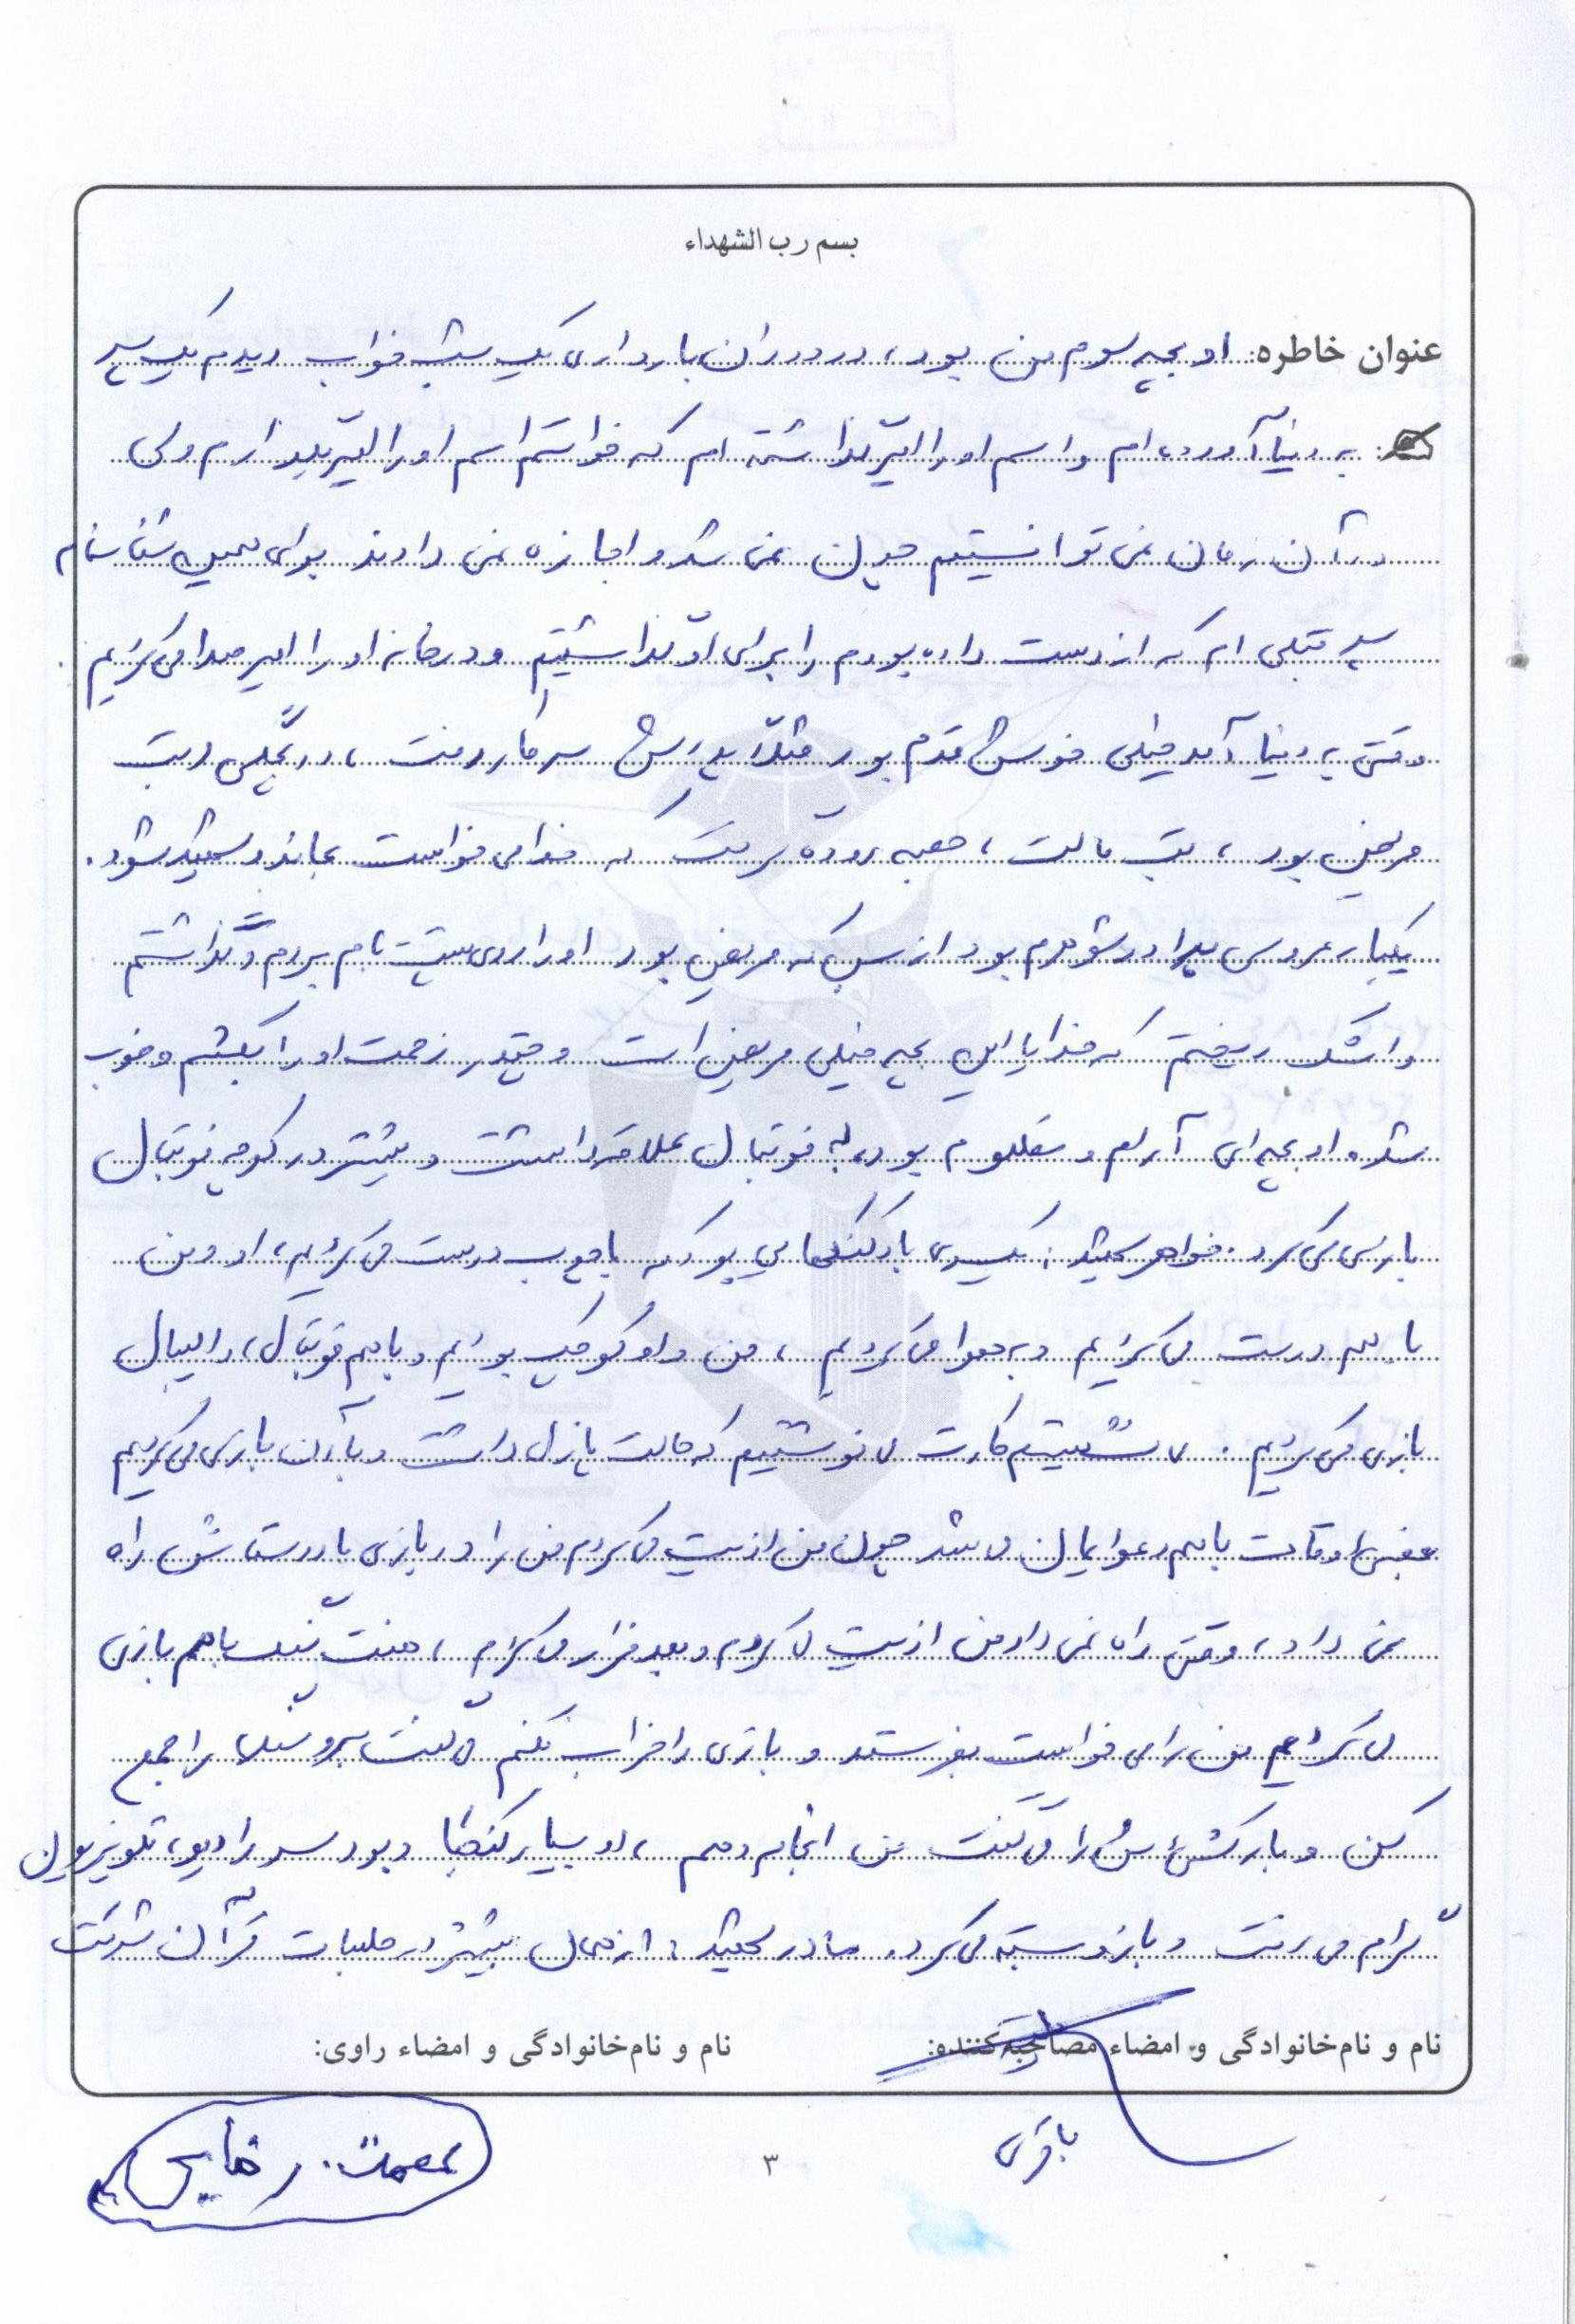 بسم رب الشهداء
عنوان خاطره: او بچه سوم من بود، در دوران بارداری یک شب خواب دیدم یک پسر
به دنیا آورده ام و اسم او را اکبر گذاشته ام که خواستم اسم او را اکبر بگذارم ولی
در آن زمان نمی توانستیم چون نمی شد و اجازه نمی دادند برای همین شناسنام
پسر قبلی ام که از دست داده بودم را برای او گذاشتیم و در خانه او را امیر صدا می کردیم.
وقتی به دنیا آمد خیلی خوش قدم بود مثلاً پدرش سر کار رفت، در بچگی
مریض بود، تب مالت، حصبه روده گرفت که خدا می خواست بماند و شهید شود.
یکبار عروسی برادر شوهرم بود از بس که مریض بود او را روی پشت بام بردم و گذاشتم
و اشک ریختم که خدایا این بچه خیلی مریض است و چقدر زحمت او را بکشم و خوب
شد. او بچه ای آرام و مظلوم بود، به فوتبال علاقه داشت و بیشتر در کوچه فوتبال
بازی می کرد. خواهر شهید: یکسری بادکنکهایی بود که با چوب درست می کردیم، او و من
با هم درست می کردیم و به هوا می کردیم، من و او کوچک بودیم و با هم فوتبال، والیبال
بازی می کردیم. می نشستیم کارت می نوشتیم که حالت پازل داشت و با آن بازی می کردیم
بعضی اوقات با هم دعوایمان می شد چون من اذیت می کردم من را در بازی با دوستاش راه
نمی داد، وقتی راه نمی داد من اذیت می کردم و بعد فرار می کردم، هفت سنگ با هم بازی
می کردیم من را می خواست بفرستد و بازی را خراب نکنم می گفت برو سنگ را جمع
کن و بارکشی اش را می گفت من انجام دهم، او بسیار کنجکاو بود سر رادیو، تلویزیون
گرام می رفت و باز و بسته می کرد. مادر شهید: از همان بیشتر در جلسات قرآن شرکت
نام و نام‌خانوادگی و امضاء مصاحبه‌کننده:
نام و نام‌خانوادگی و امضاء راوی:
باقری
عصمت رضایی
۳